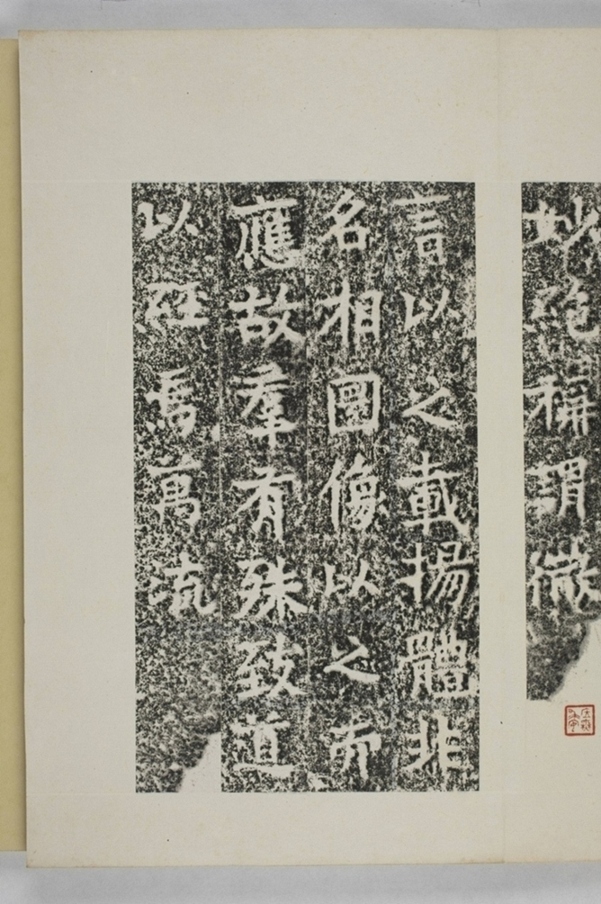 妙絶稱謂微
言以之載揚體非
名相圖像以之而
應故羣有殊致道
以焉萬流